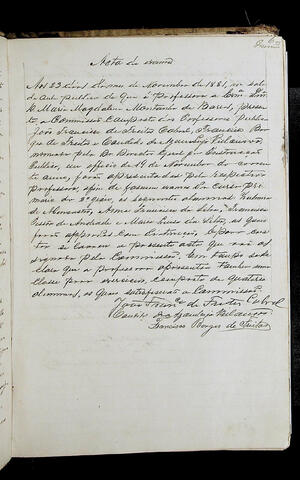 Acta de exame
Aos 23 dias do mez de Novembro de 1881, na sala
da aula publica de que é professora a Exma Snra
D. Maria Magdalena de Barros, presen-
te a Commissão composta dos Professores publicos
João Francisco de Freitas Cabral, Francisco Bor-
ges de Freitas e Candido de Azambuja Villanova
nomeada pelo Dr. Director Geral da Instrucção
Publica, em officio de 19 de Novembro do corren-
te anno, forão apresentadas pela respectiva
professora, afim de fazerem exame do curso pri-
mario do 2º grau, as seguintes alumnas:
Francisca
de Andrade e Maria da Silva, as quaes
forão approvadas com distincção. E para cons-
tar se lavrou a presente acta que vai as-
signada pela Commissão. Em tempo se de-
clara que a professora apresentou tambem uma
classe para exercicio, composta de quatorze
alumnas, as quaes satisfizerão a Commissão.
João Franco de Freitas Cabral
Candido de Azambuja Villanova
Francisco Borges de Freitas